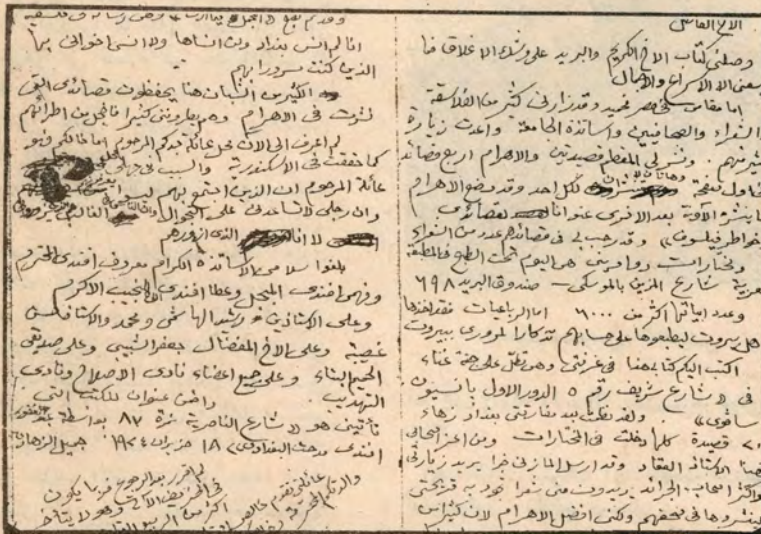 الاخ الفاضل
وصلني كتاب الاخ الكريم والبريد على وشك الاغلاق فما
يسعني الا الاسراع والاجمال
اما مقامي في مصر فحميد وقد زارني كثير من الفلاسفة
والشعراء والصحافيين واساتذة الجامعة واعدت زيارة
كثير منهم . ونشر لي المقطم قصيدتين والاهرام اربع قصائد
لكل احد وقد وضع الاهرام
ما ينشره الآونة بعد الاخرى عنوانا لقصائدي
خواطر فيلسوف» وقد رحب بي في قصائدهم عدد من الشعراء
ومختارات دواويني هي اليوم تحت الطبع في المطبعة
العربية شارع المزين بالموسكي - صندوق البريد ٦٩٨
وعدد ابياتها اكثر من ٦٠٠٠ اما الرباعيات فقد اخذها
اهل بيروت ليطبعوها على حسابهم تذكارا لمروري ببيروت
اكتب اليكم كتابي هذا في غرفتي وهي تطل على جنة غناء
في « شارع شريف رقم ٥ الدور الاول بانسيون
ساقوي» . ولقد نظمت بعد مفارقتي بغداد زهاء
٢٠ قصيدة كلها دخلت في المختارات ومن اعز اصحابي
هنا الاستاذ العقاد وقد ارسل المازني خبرا يريد زيارتي
واكثر اصحاب الجرائد يريدون مني شعرا تجود به قريحتي
لينشروها في صحفهم ولكني افضل الاهرام لان كثيرا من
انا لم انس بغداد ولن انساها ولا انسى اخواني بها
الذين كنت مسرورا بهم
الكثير من الشبان هنا يحفظون قصائدي التي
نشرت في الاهرام وهم يطرونني كثيرا فاخجل من اطرائهم
لم اعرف الى الآن محل عائلة جدكم المرحوم اما خالكم فهو
كما حققت في الاسكندرية والسبب في جهلي
عائلة المرحوم ان الذين اجتمع بهم ليسوا
وان رجلي لا تساعدني على التجوال
لا انا الذي ازورهم
بلغوا سلامي الاساتذة الكرام معروف افندي المحترم
وفهمي افندي المبجل وعطا افندي النجيب الاكرم
وعلى الاستاذين رشيد الهاشمي ومحمد والاستاذ حسن
غصيبة وعلى الاخ المفضال جعفر الشبيبي وعلى صديقي
الحميم البناء وعلى جميع اعضاء نادي الاصلاح ونادي
التهذيب . واضن عنوان للكتب التي
تأتيني هو « شارع الناصرية نمرة ٨٧ بواسطة
افندي مدحت البغدادي» ١٨ حزيران ١٩٢٤ جميل الزهاوي
لم اقرر بعد الرجوع فربما يكون
في الخريف الآتي وهو لا يتأخر
اكثر من الربيع
عائلتي تقدم خالص
والدتكم المحترمة